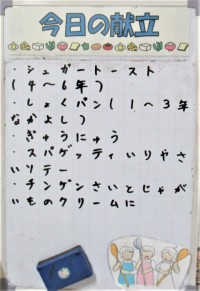 今日の献立
・シュガートースト
(4〜6年)
・しょくパン(1〜3年
なかよし)
・ぎゅうにゅう
・スパゲッティいりやさ
いソテー
・チンゲンさいとじゃが
いものクリームに